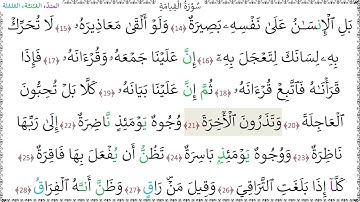 سُورَةُ القِيَامَةِ المدّ، الغنّة، القلقلة
بَلِ ٱلْإِنسَـٰنُ عَلَىٰ نَفْسِهِۦ بَصِيرَةٌ (14) وَلَوْ أَلْقَىٰ مَعَاذِيرَهُۥ (15) لَا تُحَرِّكْ
بِهِۦ لِسَانَكَ لِتَعْجَلَ بِهِۦٓ (16) إِنَّ عَلَيْنَا جَمْعَهُۥ وَقُرْءَانَهُۥ (17) فَإِذَا
قَرَأْنَـٰهُ فَٱتَّبِعْ قُرْءَانَهُۥ (18) ثُمَّ إِنَّ عَلَيْنَا بَيَانَهُۥ (19) كَلَّا بَلْ تُحِبُّونَ
ٱلْعَاجِلَةَ (20) وَتَذَرُونَ ٱلْـَٔاخِرَةَ (21) وُجُوهٌ يَوْمَئِذٍ نَّاضِرَةٌ (22) إِلَىٰ رَبِّهَا
نَاظِرَةٌ (23) وَوُجُوهٌ يَوْمَئِذٍۭ بَاسِرَةٌ (24) تَظُنُّ أَن يُفْعَلَ بِهَا فَاقِرَةٌ (25)
كَلَّآ إِذَا بَلَغَتِ ٱلتَّرَاقِىَ (26) وَقِيلَ مَنْ ۜ رَاقٍ (27) وَظَنَّ أَنَّهُ ٱلْفِرَاقُ (28)